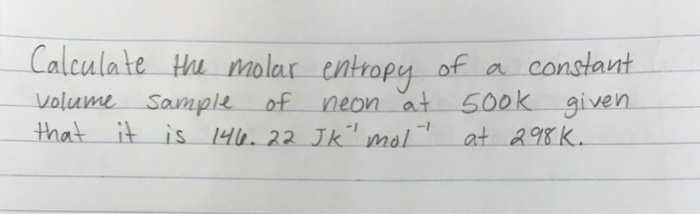 Calculate the molar entropy of a constant
volume sample of neon at 500K given
that it is 146.22 JK⁻¹ mol⁻¹ at 298K.